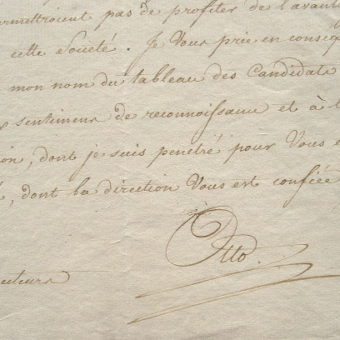 mettroient pas de profiter de l'avant
cette Société. Je Vous prie en conseq
mon nom du tableau des Candidats
sentimens de reconnoissance et à l
ion, dont je suis penétré pour Vous e
, dont la direction Vous est confiée
Otto.
cteurs